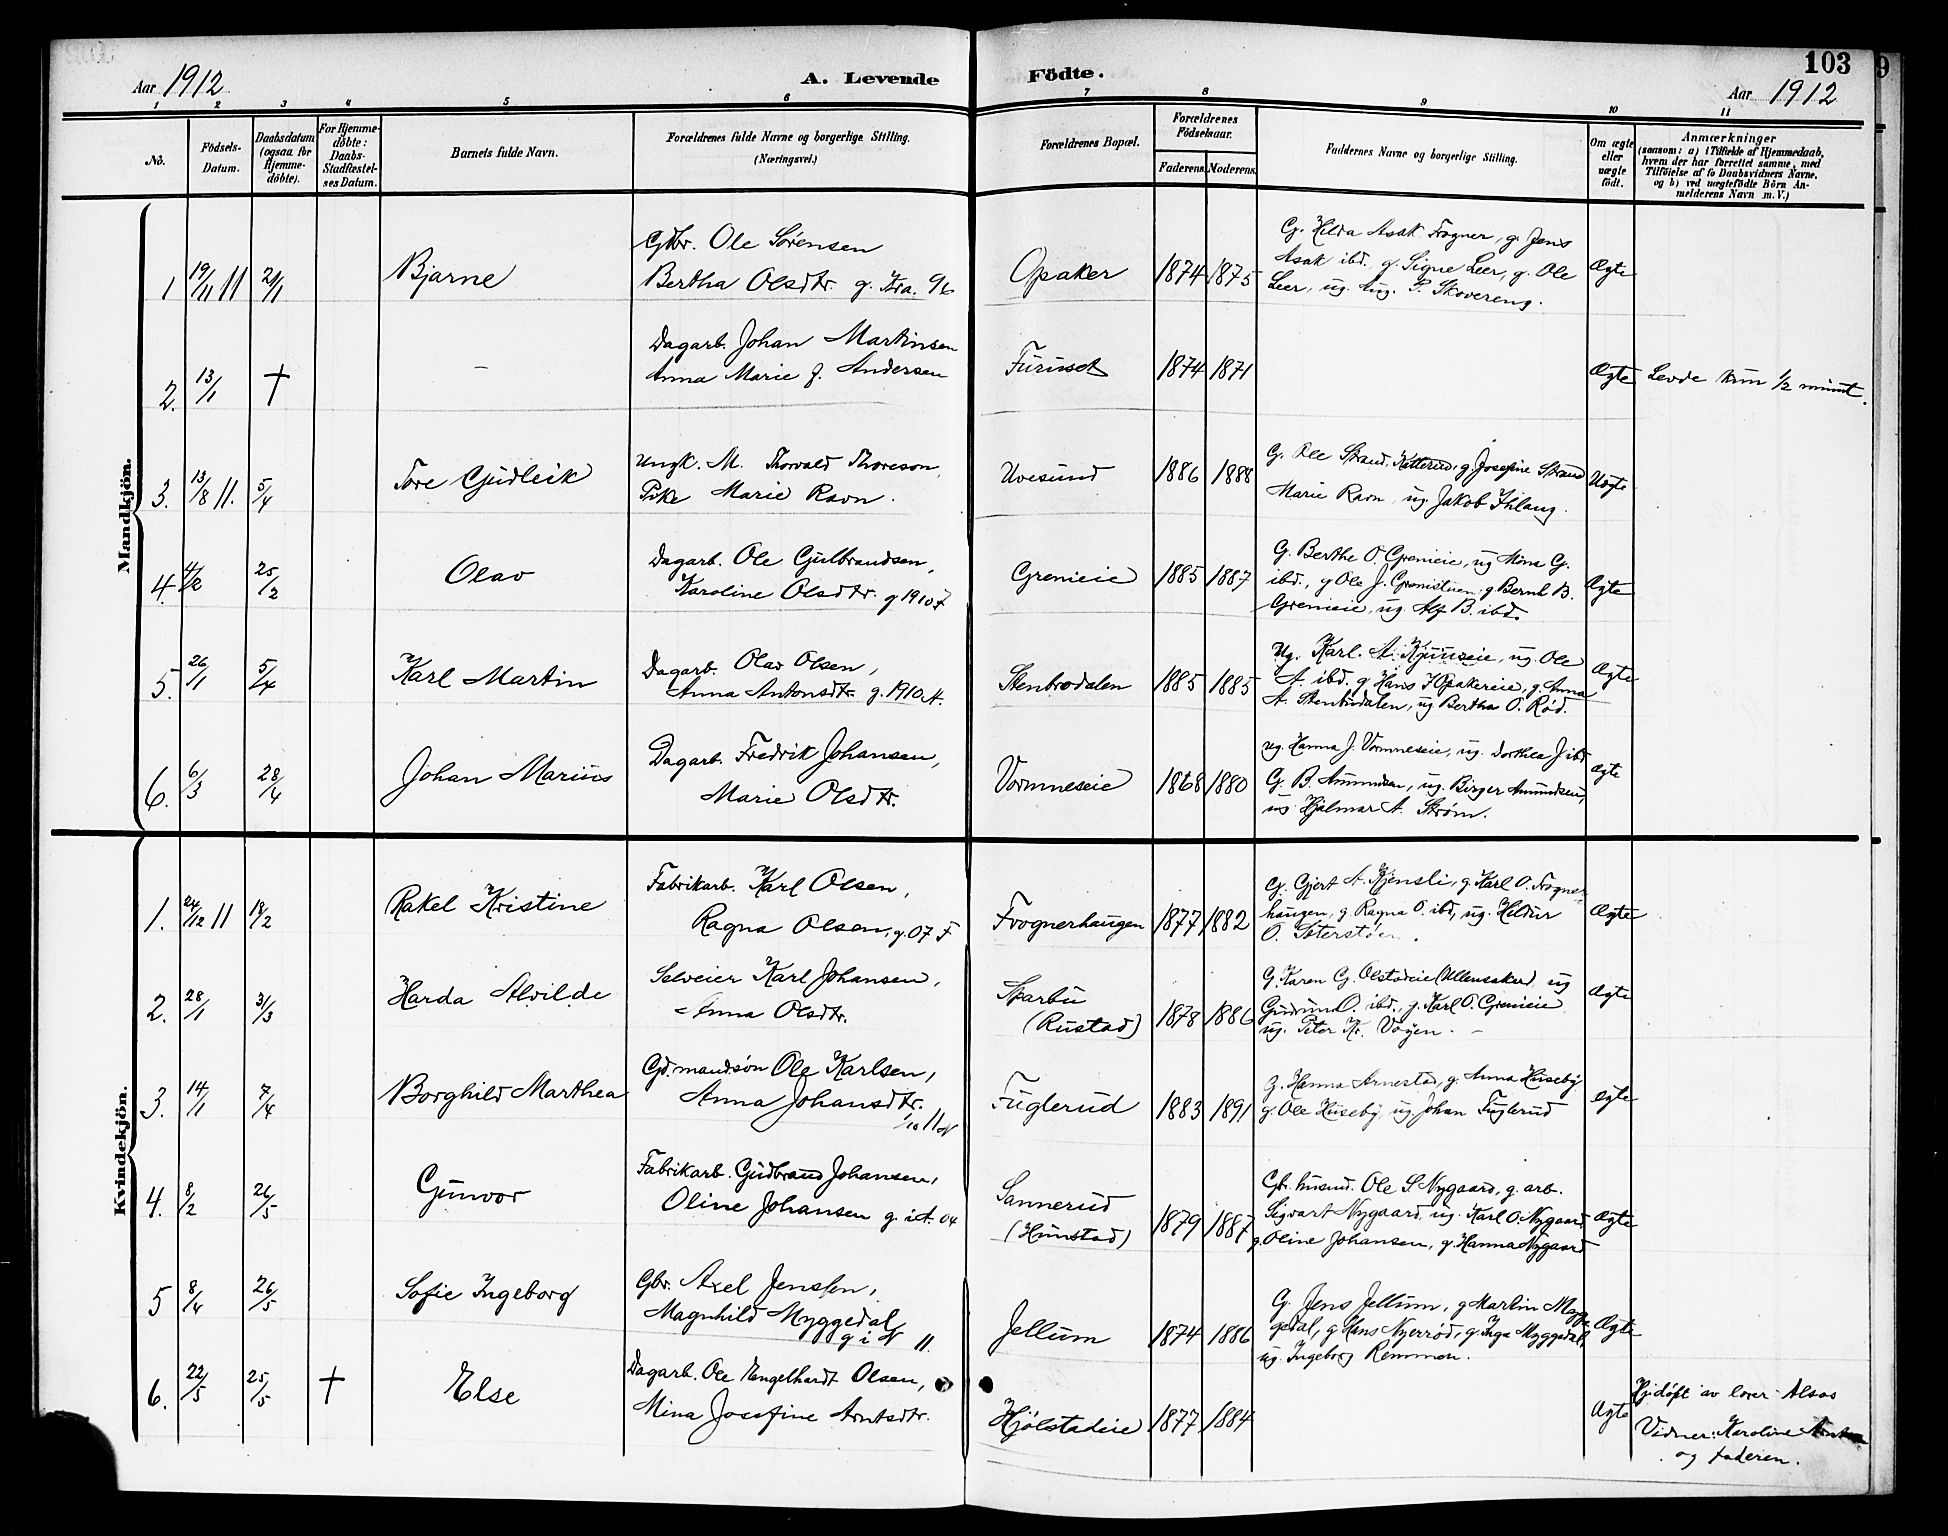 103
Aar 1912
A. Levende
Födte.
Aar 1912
1 2 3 4 5 6 7 8 9 10 11
No.
Födsels-
Datum.
Daabsdatum
(ogsaa for
Hjemme-
döbte).
For Hjemme-
döbte:
Daabs-
Stadfæstel-
ses Datum.
Barnets fulde Navn.
Forældrenes fulde Navne og borgerlige Stilling.
(Næringsvei.)
Forældrenes Bopæl.
Forældrenes
Födselsaar.
Faderens. Moderens.
Faddernes Navne og borgerlige Stilling.
Om ægte
eller
uægte
födt.
Anmærkninger
(saasom: a) i Tilfælde af Hjemmedaab,
hvem der har forrettet samme, med
Tilföielse af to Daabsvidners Navne.
og b) ved uægtefödte Börn An-
melderens Navn m.V.)
Mandkjön.
1 19/11 11 21/1 Bjarne
Gbr. Ole Sörensen
Bertha Olsdtr. g. Kra. 96
Opaker 1874 1875
G. Hilda Asak Frogner, g. Jens
Asak ibd. g. Signe Leer, g. Ole
Leer, ug. Aug. P. Skovereng.
Ægte
2. 13/1 † –
Dagarb. Johan Martinsen
Anna Marie f. Andersen
Furuset 1874 1871
Ægte Levde kun 1/2 minut.
3. 13/8 11. 5/4 Tore Gudleik
Ungk. M. Thorvald Thoreson,
Pike Marie Ravn.
Uvesund 1886 1888
G. Ole Strand, Katterud, g. Josefine Strand
Marie Ravn, ug. Jakob Ihlang.
Uægte
4. 4/2 25/2 Olav
Dagarb. Ole Gulbrandsen,
Karoline Olsdtr. g 1910 F
Grenieie 1885 1887
G. Berthe O. Grenieie, ug Mina G.
ibd., g Ole J. Grenistuen, g Bernh B.
Grenieie, ug. Alf B. ibd.
Ægte
5. 26/1 5/4 Karl Martin
Dagarb. Olav Olsen,
Anna Antonsdtr. g. 1910 A.
Stenbrodalen 1885 1885
Ug. Karl. A. ug. Ole
A. ibd. g Hans Opakereie, g. Anna
A. Stenbrodalen, ug Bertha O. Rød.
Ægte
6. 6/3 28/4 Johan Marius
Dagarb. Fredrik Johansen,
Marie Olsdtr.
Vormneseie 1868 1880
ug. Hanna J. Vormneseie, ug. Dorthea J ibd
G. B. Amundsen, ug. Birger Amundsen,
ug. Hjalmar A. Strøm.
Ægte
Kvindekjön.
1. 24/12 11 18/2 Rakel Kristine
Fabrikarb. Karl Olsen,
Ragna Olsen, g. 07 F
Frognerhaugen 1877 1882
G. Gjert A. Kjensli, g Karl O. Frogner-
haugen, g Ragna O. ibd, ug. Hildur
O.
Ægte
2. 28/1 3/3 Harda Alvilde
Selveier Karl Johansen,
Anna Olsdtr.
Skarbu
(Rustad) 1878 1886
G. Karen G. Olstadeie (Ullensaker) ug
Gudrun O. ibd. g. Karl O. Grenieie
ug. Peter Kr. Vøyen. –
Ægte
3. 14/1 7/4 Borghild Marthea
Gd.mandsön Ole Karlsen,
Anna Johansdtr.
/10 11 N
Fuglerud 1883 1891
G. Hanna Arnestad, g. Anna Huseby
g Ole Huseby, ug. Johan Fuglerud
Egte
4. 8/2 26/5 Gunvor
Fabrikarb. Gudbrand Johansen,
Oline Johansen g. i A. 04
Sannerud
(Hunstad) 1879 1887
Gbr. husmd. Ole S. Nygaard, g. arb.
Sigvart Nygaard, ug. Karl O. Nygaard,
g Oline Johansen, g. Hanna Nygaard
Ægte
5 8/4 26/5 Sofie Ingeborg
Gbr. Axel Jenssen,
Magnhild Myggedal
g i N 11.
Jellum 1874 1886
G. Jens Jellum, g Martin Myg-
gedal, g Hans Nyerrød, g. Inga Myggedal,
ug. Ingeborg Remmen.
Ægte
6. 22/5 25/5 † Else
Dagarb. Ole Engelhardt Olsen,
Mina Josefine Arntsdtr.
Hjölstadeie 1877 1884
Ægte
Hjdøft av lærer Alsos
Vidner: Karoline
og faderen.